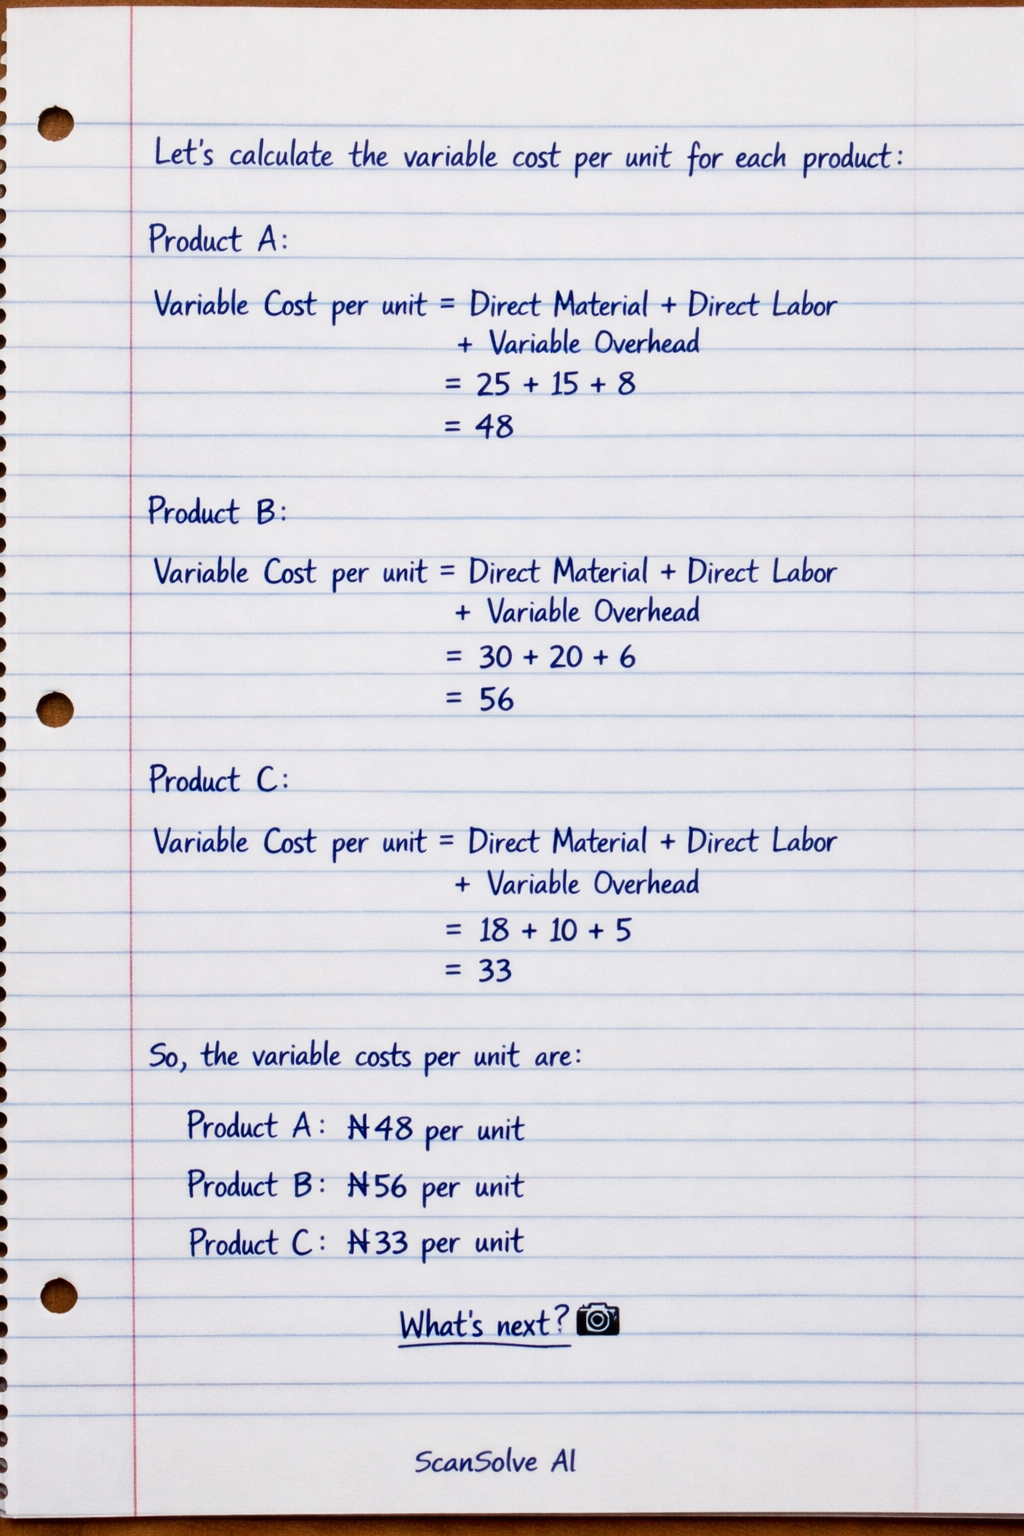 Let's calculate the variable cost per unit for each product:
Product A:
Variable Cost per unit = Direct Material + Direct Labor
+ Variable Overhead
= 25 + 15 + 8
= 48
Product B:
Variable Cost per unit = Direct Material + Direct Labor
+ Variable Overhead
= 30 + 20 + 6
= 56
Product C:
Variable Cost per unit = Direct Material + Direct Labor
+ Variable Overhead
= 18 + 10 + 5
= 33
So, the variable costs per unit are:
Product A: ₦48 per unit
Product B: ₦56 per unit
Product C: ₦33 per unit
What's next? 📷
ScanSolve AI